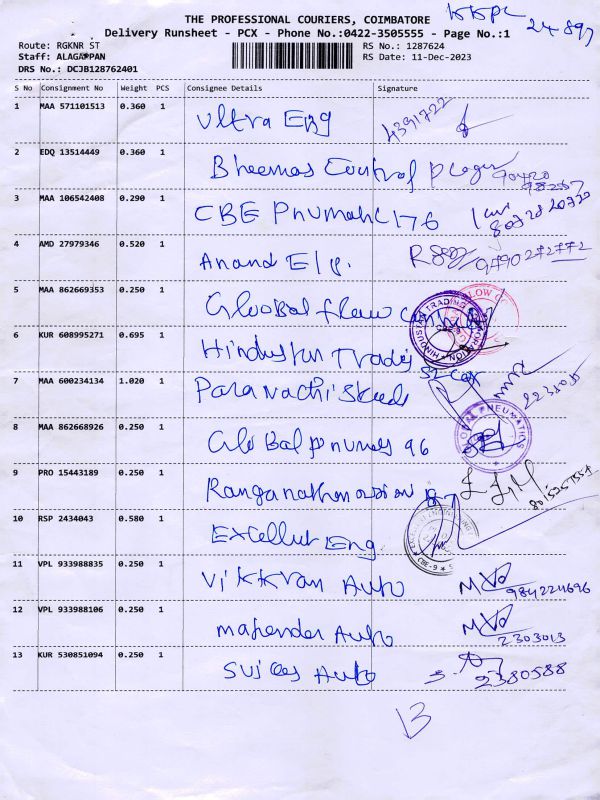 THE PROFESSIONAL COURIERS, COIMBATORE
24897
Delivery Runsheet - PCX - Phone No.:0422-3505555 - Page No.:1
Route: RGKNR ST
RS No.: 1287624
Staff: ALAGAPPAN
RS Date: 11-Dec-2023
DRS No.: DCJB128762401
S No Consignment No Weight PCS Consignee Details Signature
1 MAA 571101513 0.360 1 Ultra Eng 4391722
2 EDQ 13514449 0.360 1 Bheemas Control
3 MAA 106542408 0.290 1 CBE 176
4 AMD 27979346 0.520 1 Anand 9790272772
5 MAA 862669353 0.250 1 Global flow control
6 KUR 608995271 0.695 1 Hindustan
HINDUSTAN TRADING
7 MAA 600234134 1.020 1
8 MAA 862668926 0.250 1 Global 96
GLOBAL PNEUMATICS
9 PRO 15443189 0.250 1 Ranganathan 187
10 RSP 2434043 0.580 1 Excellent Eng
CBE-9
11 VPL 933988835 0.250 1 Vikkran Auto
12 VPL 933988106 0.250 1 mahender Auto 2303013
13 KUR 530851094 0.250 1 Auto 2380588
13